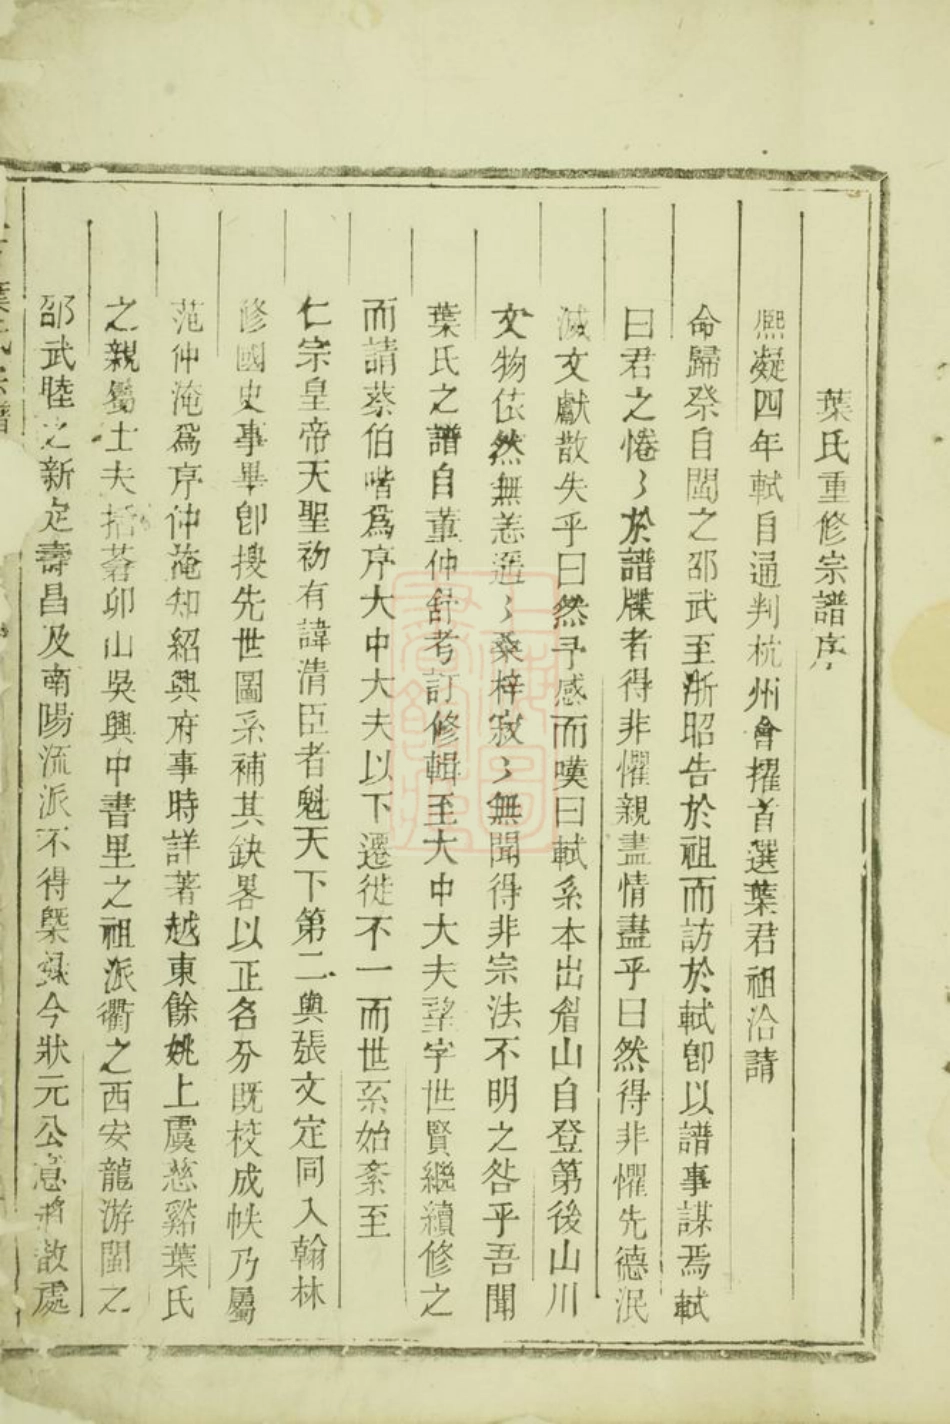 葉氏重修宗譜序
熈凝四年軾自通判杭州會擢首選葉君祖洽請
命歸祭自閩之邵武至浙昭告於祖而訪於軾卽以譜事謀焉軾
曰君之惓〻於譜牒者得非懼親盡情盡乎曰然得非懼先德泯
滅文獻散失乎曰然予感而嘆曰軾系本出眉山自登第後山川
文物依然無恙遥〻桑梓寂〻無聞得非宗法不明之咎乎吾聞
葉氏之譜自董仲舒考訂修輯至大中大夫望字世賢繼續修之
而請蔡伯喈爲序大中大夫以下遷徙不一而世系始紊至
仁宗皇帝天聖初有諱清臣者魁天下第二與張文定同入翰林
修國史事畢卽搜先世圖系補其缺畧以正名分既校成帙乃屬
范仲淹爲序仲淹知紹興府事時詳著越東餘姚上虞慈谿葉氏
之親屬士夫括蒼卯山吳興中書里之祖派衢之西安龍游閩之
邵武睦之新定壽昌及南陽流派不得槩録今狀元公息將散處
葉氏宗譜